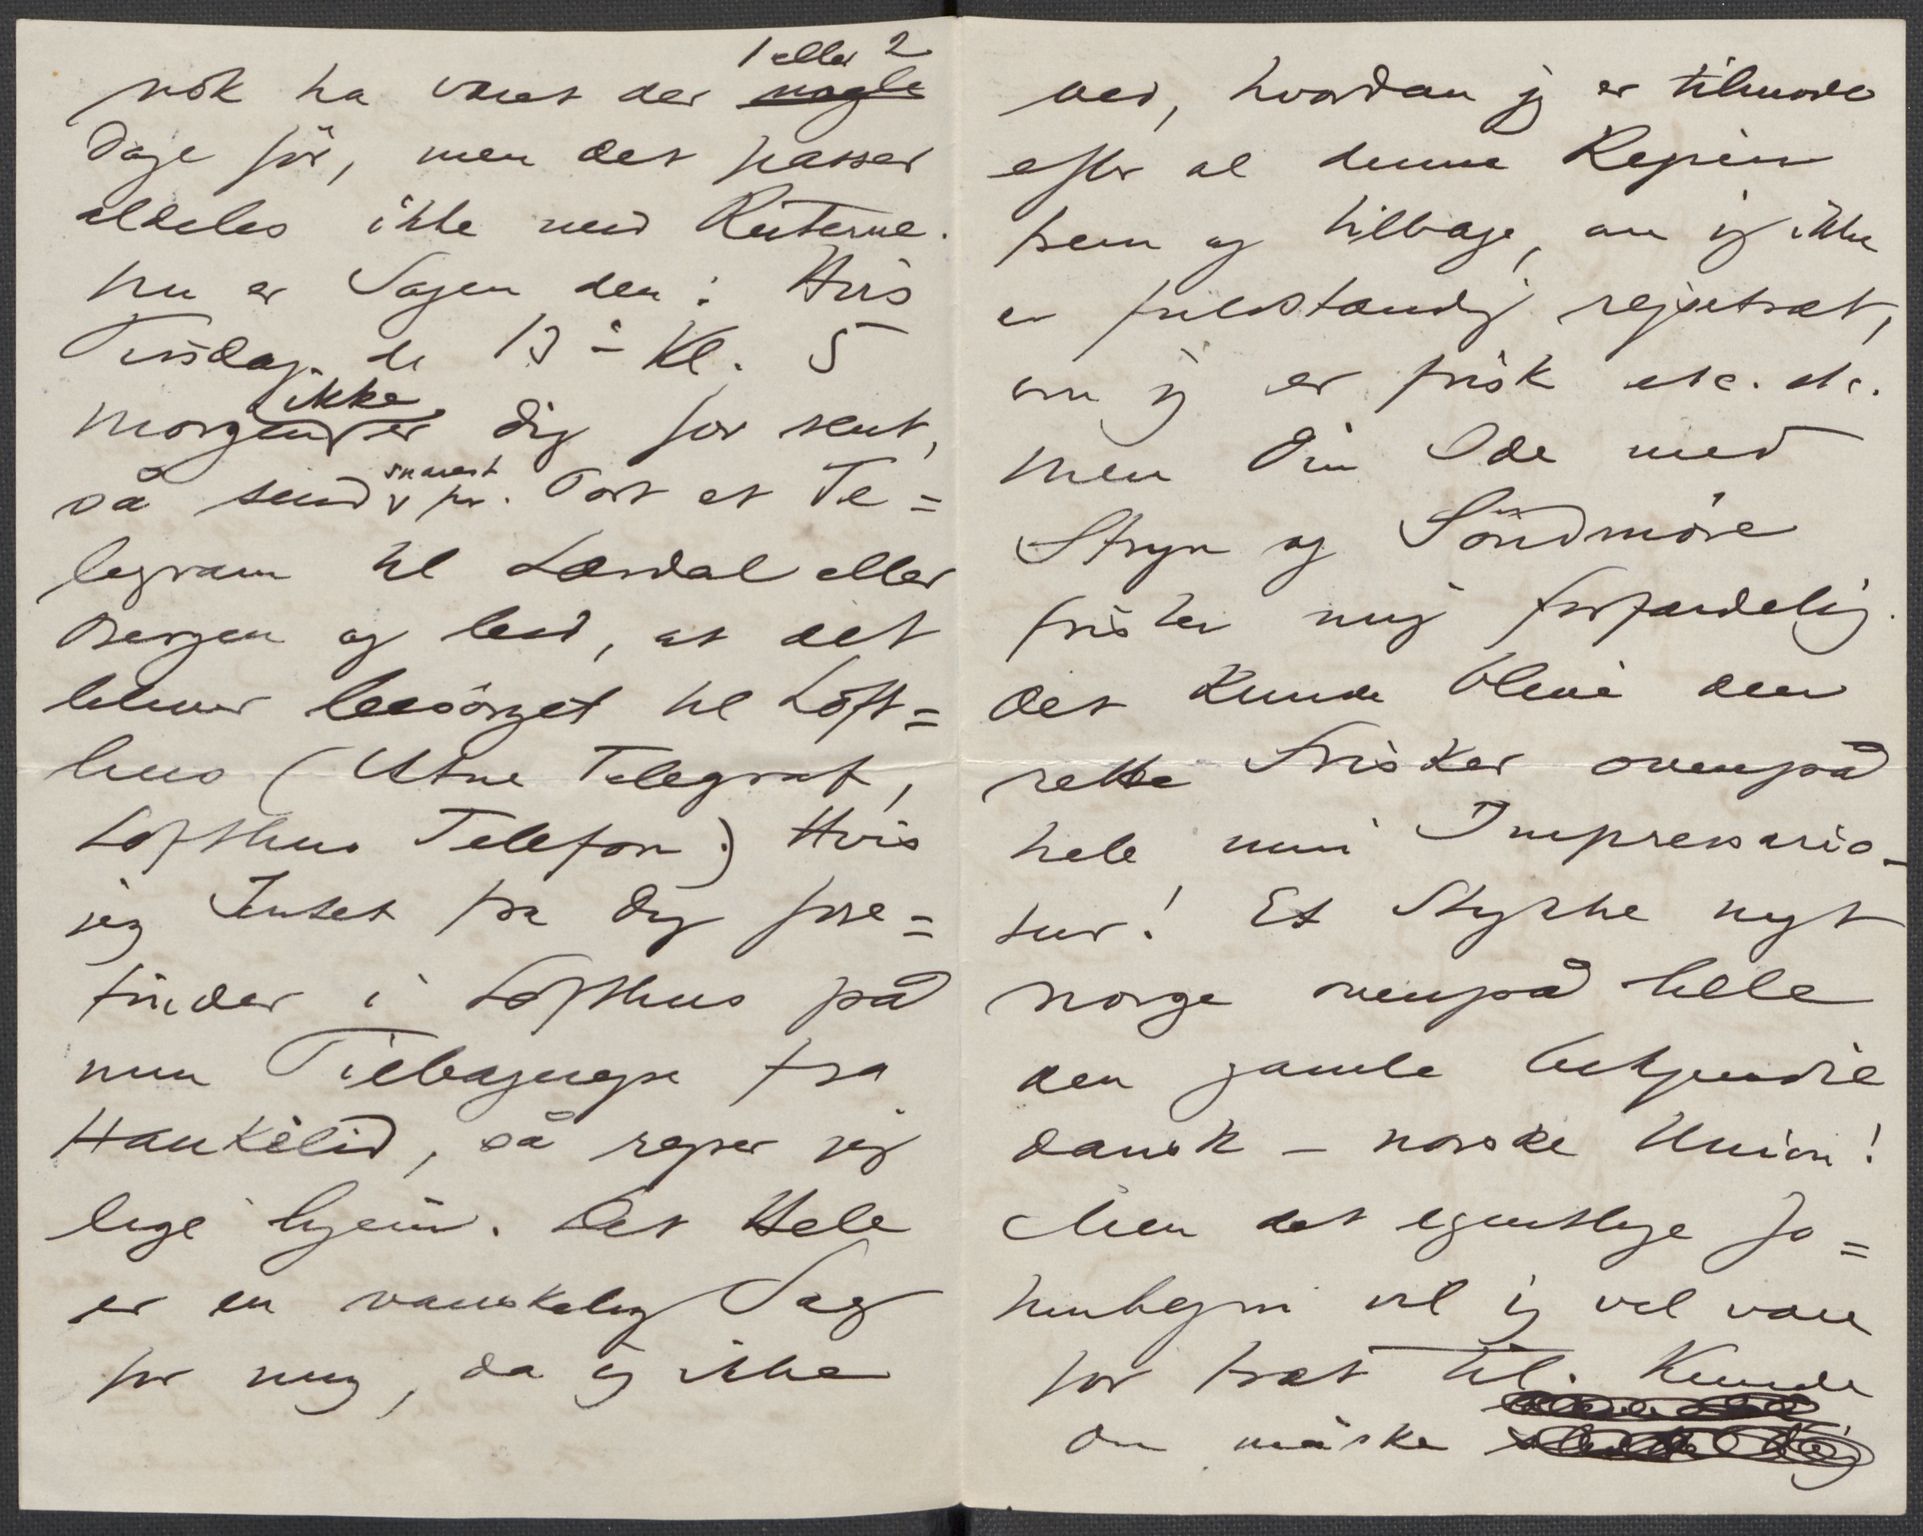 1 eller 2
nok ha været der nogle
Dage för, men det passer
aldeles ikke med Ruterne.
Nu er Sagen den: Hvis
Tirsdag. d. 13 - Kl. 5
ikke
morgen er dig for sent,
snarest
så send pr. Post et Te=
legram til Lærdal eller
Bergen og bed, at det
bliver besörget til Loft=
hus (Utne Telegraf,
Lofthus Telefon.) Hvis
jeg Intet fra Dig fore=
finder i Lofthus på
min Tilbagerejse fra
Haukelid, så rejser jeg
lige hjem. Det Hele
er en vanskelig Sag
for mig, da jeg ikke
ved, hvordan jeg er tilmode
efter al denne Rejsen
frem og tilbage, om jeg ikke
er fuldstændig rejsetræt,
om jeg er frisk etc. etc.
Men Din Ide med
Stryn og Söndmöre
frister mig forfærdelig.
Det kunde blive den
rette Frisker ovenpå
hele min Impresario-
tur! Et Stykke nyt
Norge ovenpå hele
den gamle bekjendte
dansk - norske Union!
Men det egentlige Jo=
tunhejmi vil jeg vel være
for træt til. Kunde
Du måske